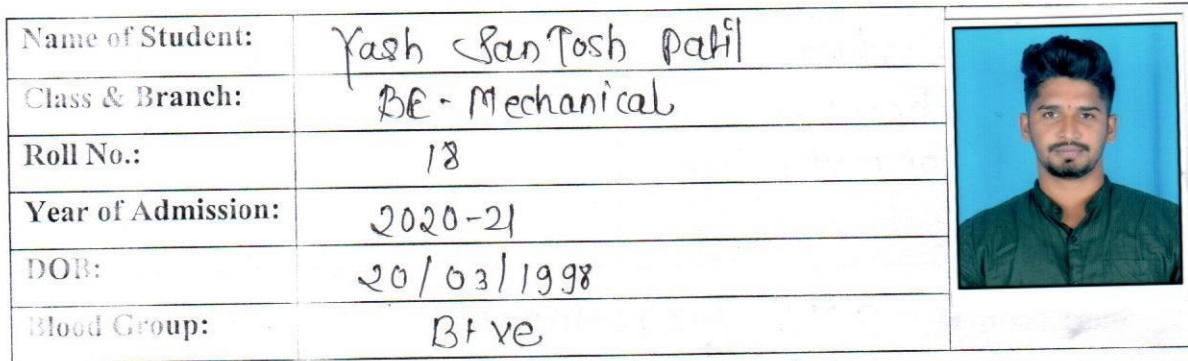 Name of Student: Yash Santosh Patil
Class & Branch: BE - Mechanical
Roll No.: 18
Year of Admission: 2020-21
DOB: 20/03/1998
Blood Group: B+ve